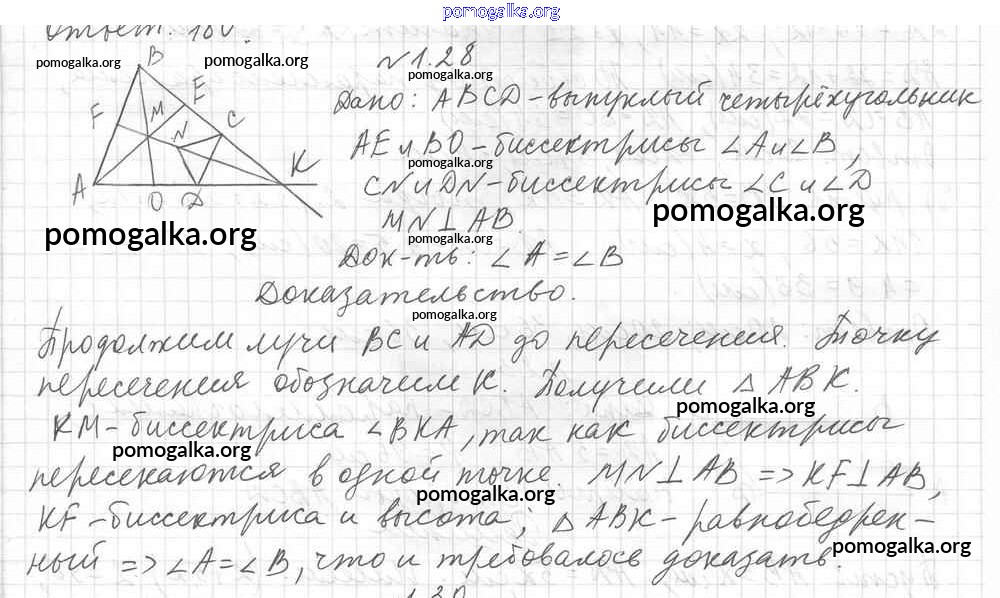 pomogalka.org
Ответ: 180°.
pomogalka.org
pomogalka.org
N 1.28
pomogalka.org
B
E
F
M
N
C
K
A
O
D
Дано: ABCD - выпуклый четырёхугольник
AE и BO - биссектрисы ∠A и ∠B,
pomogalka.org
CN и DN - биссектрисы ∠C и ∠D
pomogalka.org
MN ⊥ AB.
pomogalka.org
pomogalka.org
Док-ть: ∠A = ∠B
Доказательство.
pomogalka.org
Продолжим лучи BC и AD до пересечения. Точку
пересечения обозначим K. Получили △ ABK.
pomogalka.org
KM - биссектриса ∠BKA, так как биссектрисы
pomogalka.org
пересекаются в одной точке. MN ⊥ AB => KF ⊥ AB,
pomogalka.org
KF - биссектриса и высота; △ ABK - равнобедрен-
pomogalka.org
ный => ∠A = ∠B, что и требовалось доказать.